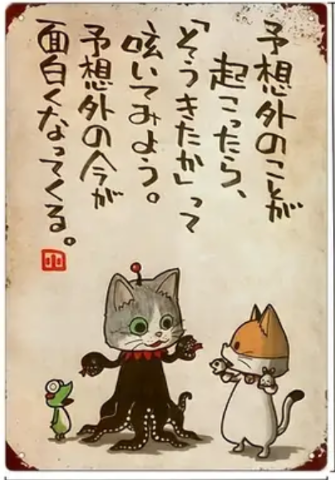 予想外のことが
起こったら、
「そうきたか」って
呟いてみよう。
予想外の今が
面白くなってくる。